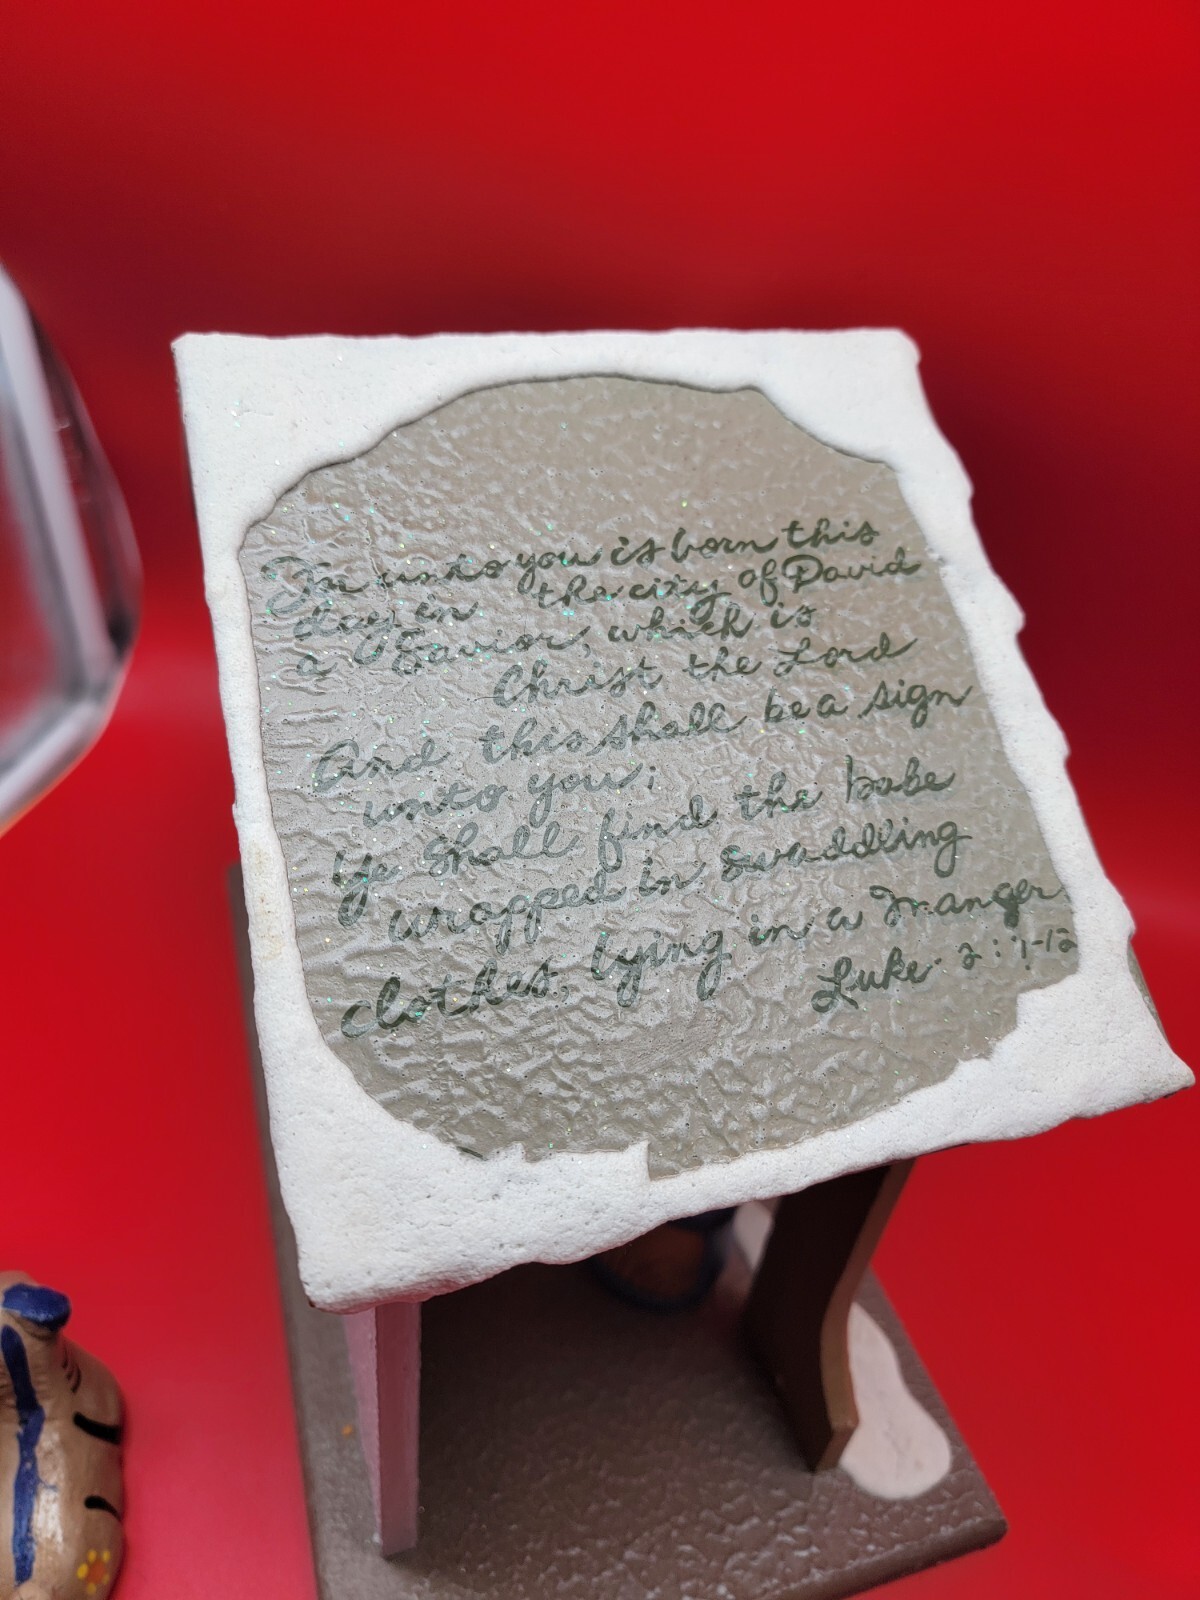 For unto you is born this
day in the city of David
a Savior, which is
Christ the Lord
And this shall be a sign
unto you;
Ye shall find the babe
wrapped in swaddling
clothes, lying in a Manger
Luke 2: